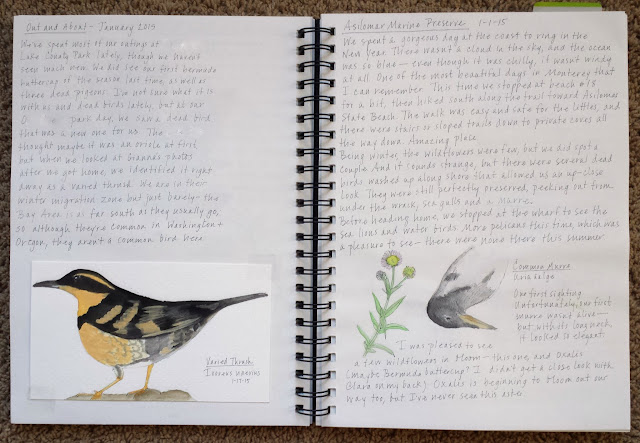 Out and About - January 2015
We've spent most of our outings at
Lake County Park lately, though we haven't
seen much new. We did see our first bermuda
buttercup of the season last time, as well as
three dead pigeons. I'm not sure what it is
with us and dead birds lately, but at our
O park day, we saw a dead bird
that was a new one for us. The
thought maybe it was an oriole at first,
but when we looked at Granna's photos
after we got home, we identified it right
away as a varied thrush. We are in their
winter migration zone but just barely - the
Bay Area is as far south as they usually go,
so although they're common in Washington +
Oregon, they aren't a common bird here.
Varied Thrush
Ixoreus naevius
1-17-15
Asilomar Marine Preserve 1-1-15
We spent a gorgeous day at the coast to ring in the
New Year. There wasn't a cloud in the sky, and the ocean
was so blue - even though it was chilly, it wasn't windy
at all. One of the most beautiful days in Monterey that
I can remember. This time we stopped at beach #13
for a bit, then hiked south along the trail toward Asilomar
State Beach. The walk was easy and safe for the littles, and
there were stairs or sloped trails down to private coves all
the way down. Amazing place.
Being winter, the wildflowers were few, but we did spot a
couple. And it sounds strange, but there were several dead
birds washed up along shore that allowed us an up-close
look. They were still perfectly preserved, peeking out from
under the wrack, sea gulls and a Murre.
Before heading home, we stopped at the wharf to see the
sea lions and water birds. More pelicans this time, which was
a pleasure to see - there were none there this summer.
Common Murre
Uria aalge
Our first sighting.
Unfortunately, our first
murre wasn't alive -
but with its long neck,
it looked so elegant.
I was pleased to see
a few wildflowers in bloom - this one, and oxalis
(maybe Bermuda buttercup? I didn't get a close look with
Clara on my back). Oxalis is beginning to bloom out our
way too, but I've never seen this aster